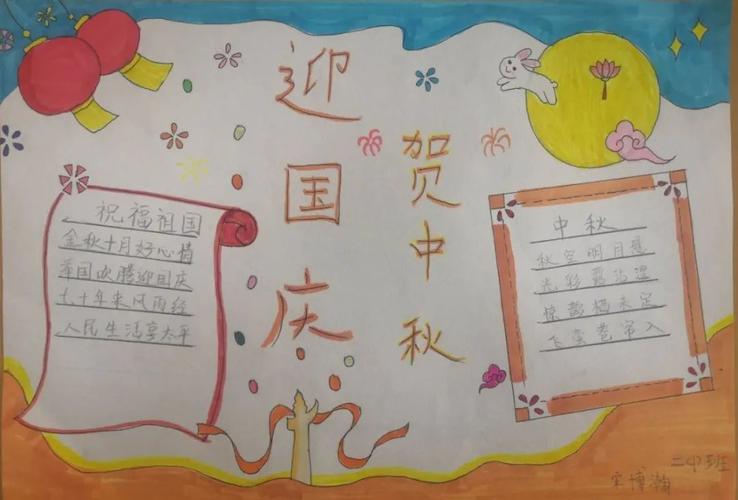 迎国庆
贺中秋
祝福祖国
金秋十月好心情
举国欢腾迎国庆
七十年来风雨经
人民生活享太平
中秋
秋空明月悬
光彩露沾湿
惊鹊栖未定
飞萤卷帘入
二（4）班
宋博瀚